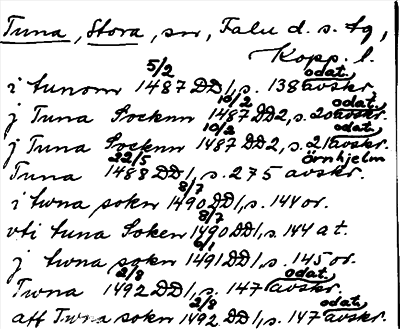 Tuna, Stora, sn, Falu d. s. tg,
Kopp. l.
i tunom 5/2 1487 DD1, s. 138 odat. avskr.
j Tuna Socknn 10/2 1487 DD2, s. 20 odat. avskr.
j Tuna Socknn 10/2 1487 DD2, s. 21 odat. avskr.
Tuna 22/5 1488 DD1, s. 275 örnhjelm avskr.
i twna sokn 8/7 1490 DD1, s. 144 or.
vti tuna Soken 8/7 1490 DD1, s. 144 at.
j twna sokn 6/1 1491 DD1, s. 145 or.
Twna 2/8 1492 DD1, s. 147 odat. avskr.
aff Twna sokn 2/8 1492 DD1, s. 147 odat. avskr.